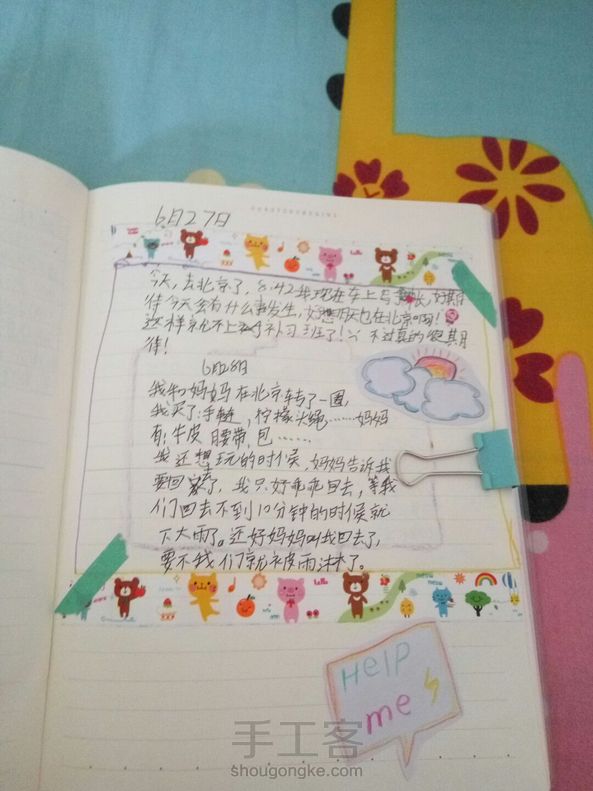 6月27日
今天,去北京了,8:42我现在车上写手帐,好期
待今天会有什么事发生,好想明天也在北京啊!
这样就不上补习班了!不过真的很期
待!
6月28日
我和妈妈在北京转了一圈,
我买了:手链,柠檬头绳……妈妈
有:牛皮腰带,包……
我还想玩的时候,妈妈告诉我
要回家了,我只好乖乖回去,等我
们回去不到10分钟的时候就
下大雨了。还好妈妈叫我回去了,
要不我们就被雨沭了。
Help
me
手工客
shougongke.com